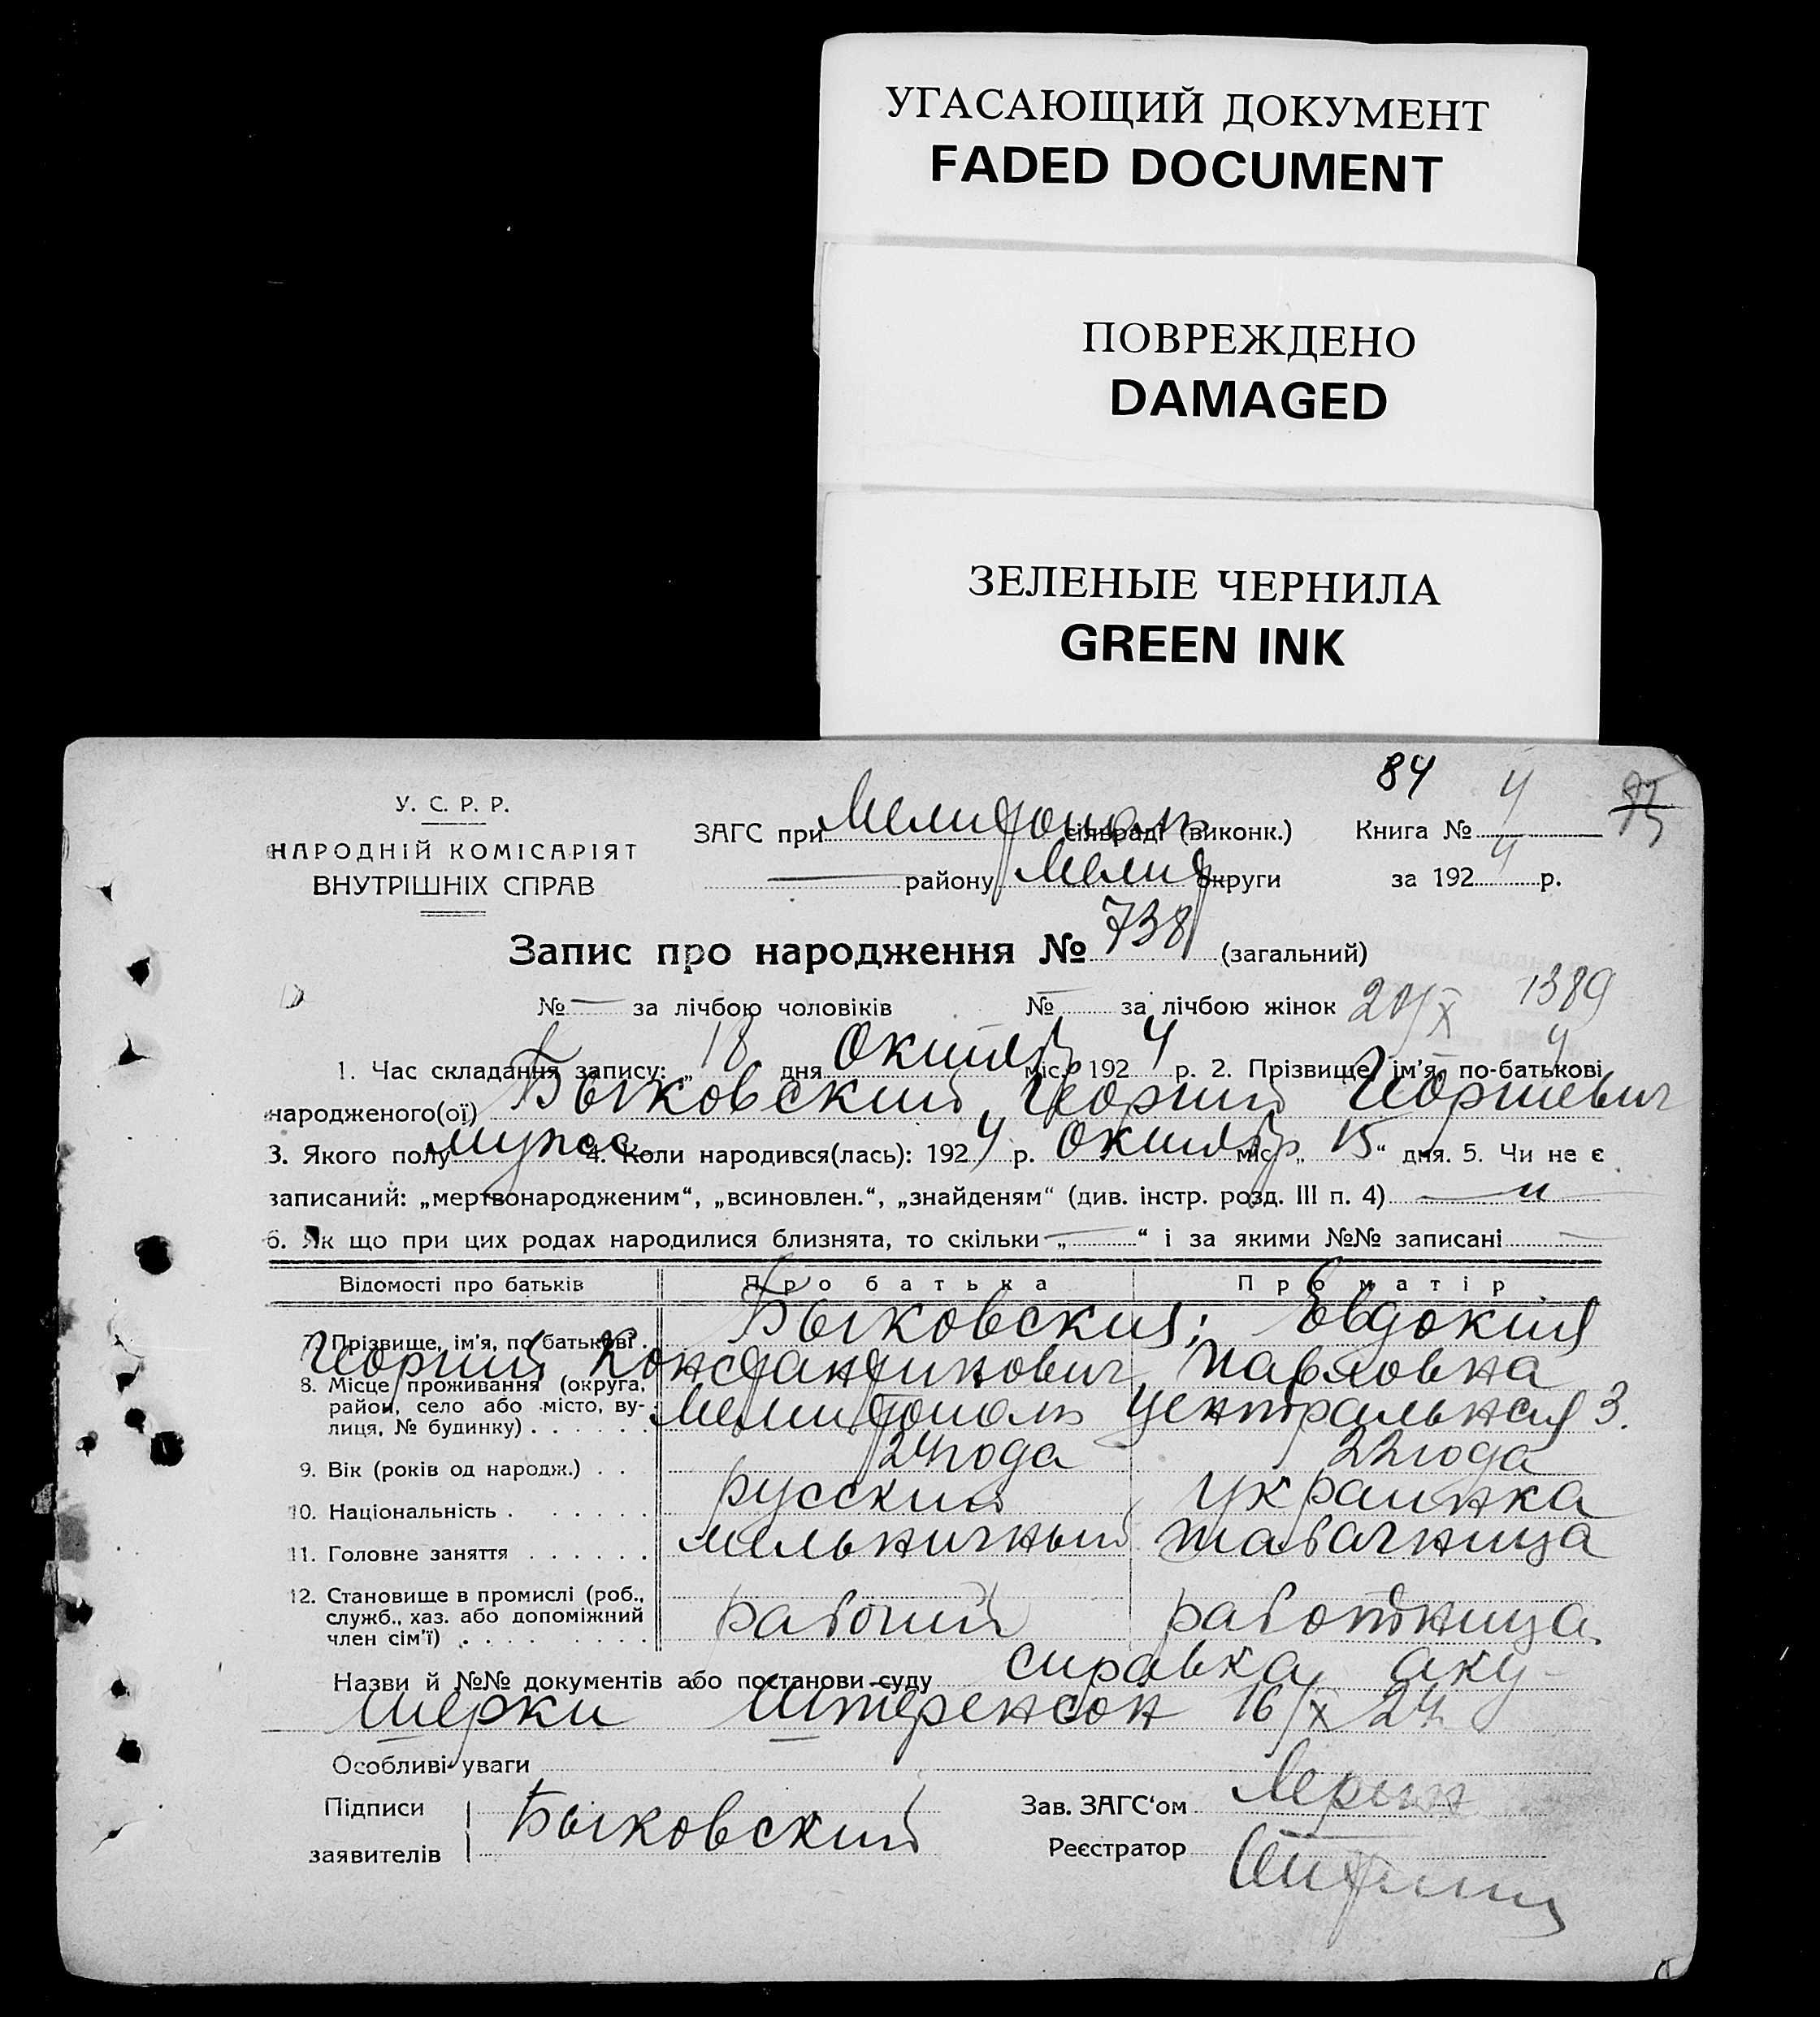 УГАСАЮЩИЙ ДОКУМЕНТ
FADED DOCUMENT
ПОВРЕЖДЕНО
DAMAGED
ЗЕЛЕНЫЕ ЧЕРНИЛА
GREEN INK
84 4
У. С. Р. Р.
НАРОДНІЙ КОМІСАРІЯТ
ВНУТРІШНІХ СПРАВ
ЗАГС при Мелитополь сільраді (виконк.) Книга №
району Мелит округи за 192 4 р.
Запис про народження № 738 (загальний)
№ — за лічбою чоловіків № — за лічбою жінок 20/X 1389
4
1. Час складання запису: „ 18 дня Октябр міс. 192 4 р. 2. Прізвище, ім'я, по-батькові
народженого(ої) Быковский, Георгий Георгиевич
3. Якого полу мужс. 4. Коли народився(лась): 192 4 р. Октябр міс. „ 15 “ дня. 5. Чи не є
записаний: „мертвонародженим“, „всиновлен.“, „знайденям“ (див. інстр. розд. III п. 4) — „ —
6. Як що при цих родах народилися близнята, то скільки „ — “ і за якими №№ записані —
Відомості про батьків Про батька Про матір
7. Прізвище, ім'я, по батькові Быковския; Евдокия
Георгий Константинович Павловна
8. Місце проживання (округа, район, село або місто, вулиця, № будинку) Мелитополь Центральная 3.
9. Вік (років од народж.) 24 года 22 года
10. Національність русский украинка
11. Головне заняття мельничный табачница
12. Становище в промислі (роб., служб., хаз. або допоміжний член сім'ї) рабочий работница.
Назви й №№ документів або постанови суду справка аку-
шерки Штеренсон 16/X 24
Особливі уваги
Підписи заявителів Быковский
Зав. ЗАГС‘ом
Реєстратор